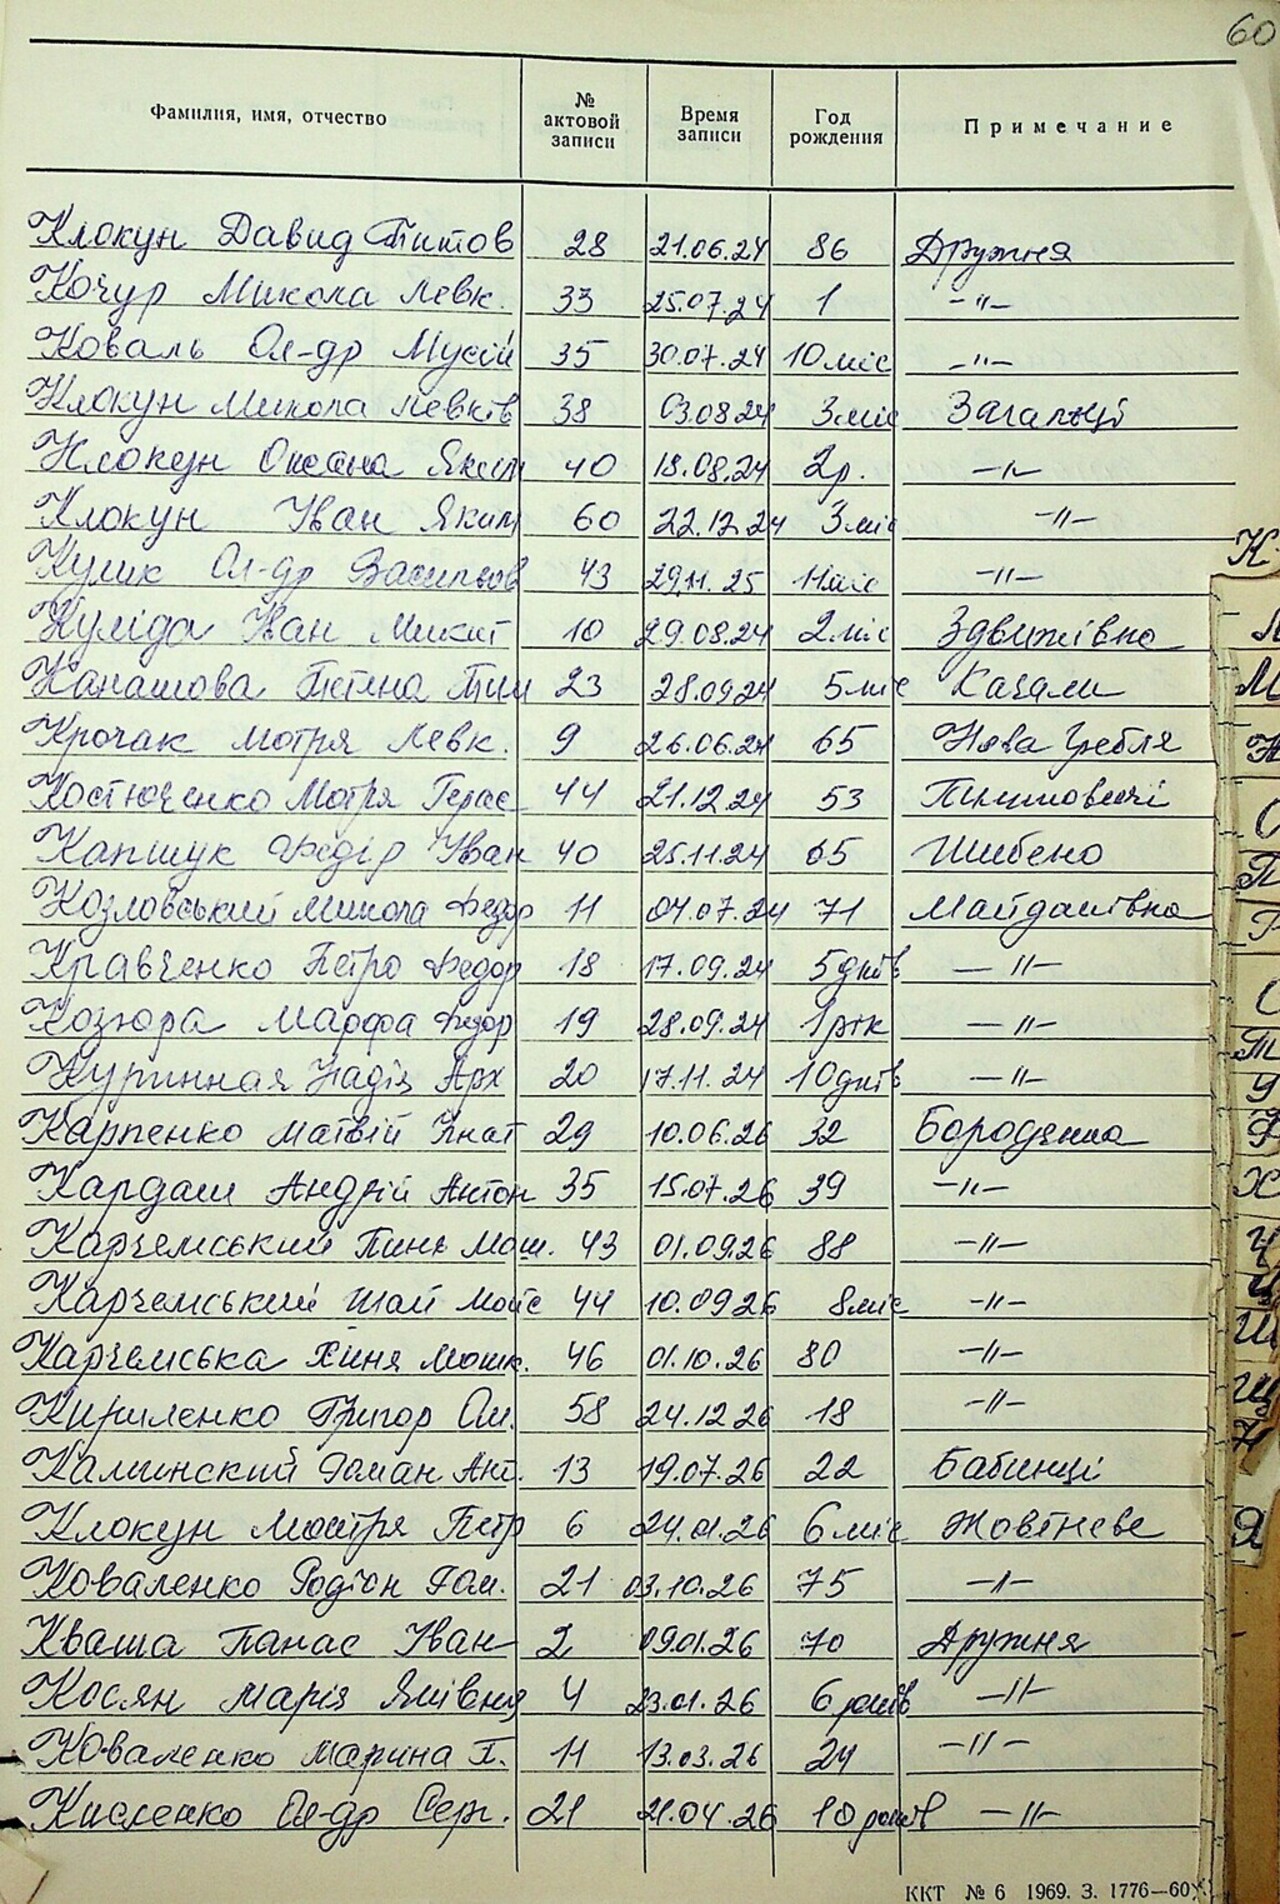 60
Фамилия, имя, отчество № актовой записи Время записи Год рождения Примечание
Клокун Давид Титов 28 21.06.24 86 Дружня
Кочур Микола Левк. 33 25.07.24 1 -"-
Коваль Ол-др Мусій 35 30.07.24 10 міс -"-
Клокун Микола Левків 38 03.08.24 3 міс Загальці
Клокун Оксана Яким 40 18.08.24 2р. -"-
Клокун Іван Яким 60 22.12.24 3 міс -"-
Кулик Ол-др Васильов 43 29.11.25 11 міс -"-
Куліда Іван Микит 10 29.08.24 2 міс Здвижівка
Канашова Тетяна Тим 23 28.09.24 5 міс Качали
Крочак Мотря Левк. 9 26.06.24 65 Нова Гребля
Костюченко Мотря Герас 44 21.12.24 53 Пилиповичі
Капшук Федір Іван 40 25.11.24 65 Шибено
Козловський Микола Федор 11 04.07.24 71 Майданівка
Кравченко Петро Федор 18 17.09.24 5 днів -"-
Козюра Марфа Федор 19 28.09.24 1 рік -"-
Куринная Надія Арх 20 17.11.24 10 днів -"-
Карпенко Матвій Ігнат 29 10.06.26 32 Бородянка
Кардаш Андрій Антон 35 15.07.26 39 -"-
Карчемський Пиня Мош. 43 01.09.26 88 -"-
Карчемський Шай Мойс 44 10.09.26 8 міс -"-
Карчемська Хиня Мошк. 46 01.10.26 80 -"-
Кириленко Григор Ол. 58 24.12.26 18 -"-
Калинский Роман Ант. 13 19.07.26 22 Бабинці
Клокун Мотря Петр 6 24.01.26 6 міс Жовтневе
Коваленко Родіон Ром. 21 03.10.26 75 -"-
Кваша Панас Іван 2 09.01.26 70 Дружня
Косян Марія Яківня 4 23.01.26 6 років -"-
Коваленко Марина П. 11 13.03.26 24 -"-
Кисленко Ол-др Серг. 21 21.04.26 10 років -"-
ККТ № 6 1969. З. 1776—60